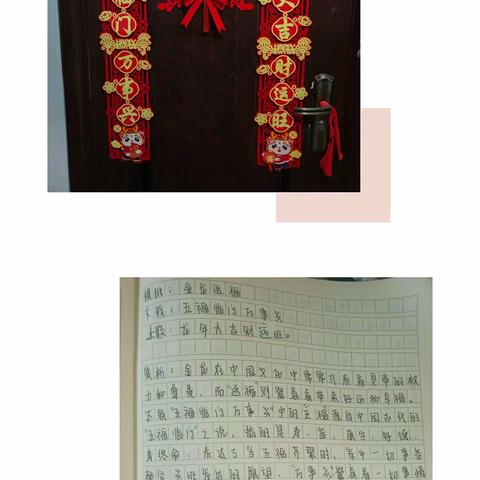 临门万事兴
大吉财运旺
横批：金龙送福
下联：五福临门万事兴
上联：龙年大吉财运旺。
赏析：金龙在中国文化中常常 着皇帝的权
力和尊贵，而送福则寓意着带来好运和幸福。
下联“五福临门万事兴”中的五福源自中国古代的
“五福临门”之说，指的是寿、富、康宁、好德、
考终命。表达了当五福齐聚时，家中一切事务
都会兴旺发达的愿望。“万事兴”寓意着一切事情